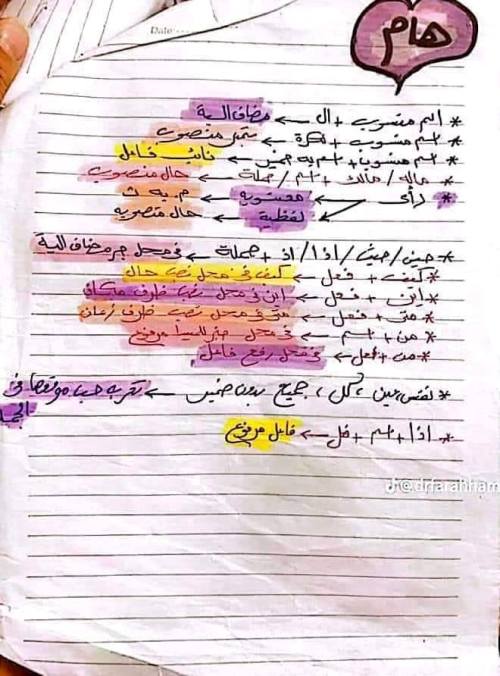 هام
Date:
* اسم منسوب + ال ← مضاف الية
* اسم منسوب + نكرة ← تميز منصوب
* اسم منسوب + اسم به ضمير ← نائب فاعل
* ماله / مالك + اسم / جملة ← حال منصوب
* رأى ← معنوية ← م. به ث
لفظية ← حال منصوبه
* حين / حيث / اذا / اذ + جملة ← في محل جر مضاف الية
* كيف + فعل ← كيف في محل نصب حال
* اين + فعل ← اين في محل نصب ظرف مكان
* متى + فعل ← متى في محل نصب ظرف زمان
* من + اسم ← في محل
* من + فعل ← في محل رفع فاعل
* نفس، عين، كل، جميع بدون ضمير ← تعرب حسب موقعها في
* اذا + اسم + فعل ← فاعل مرفوع
@drfarahham